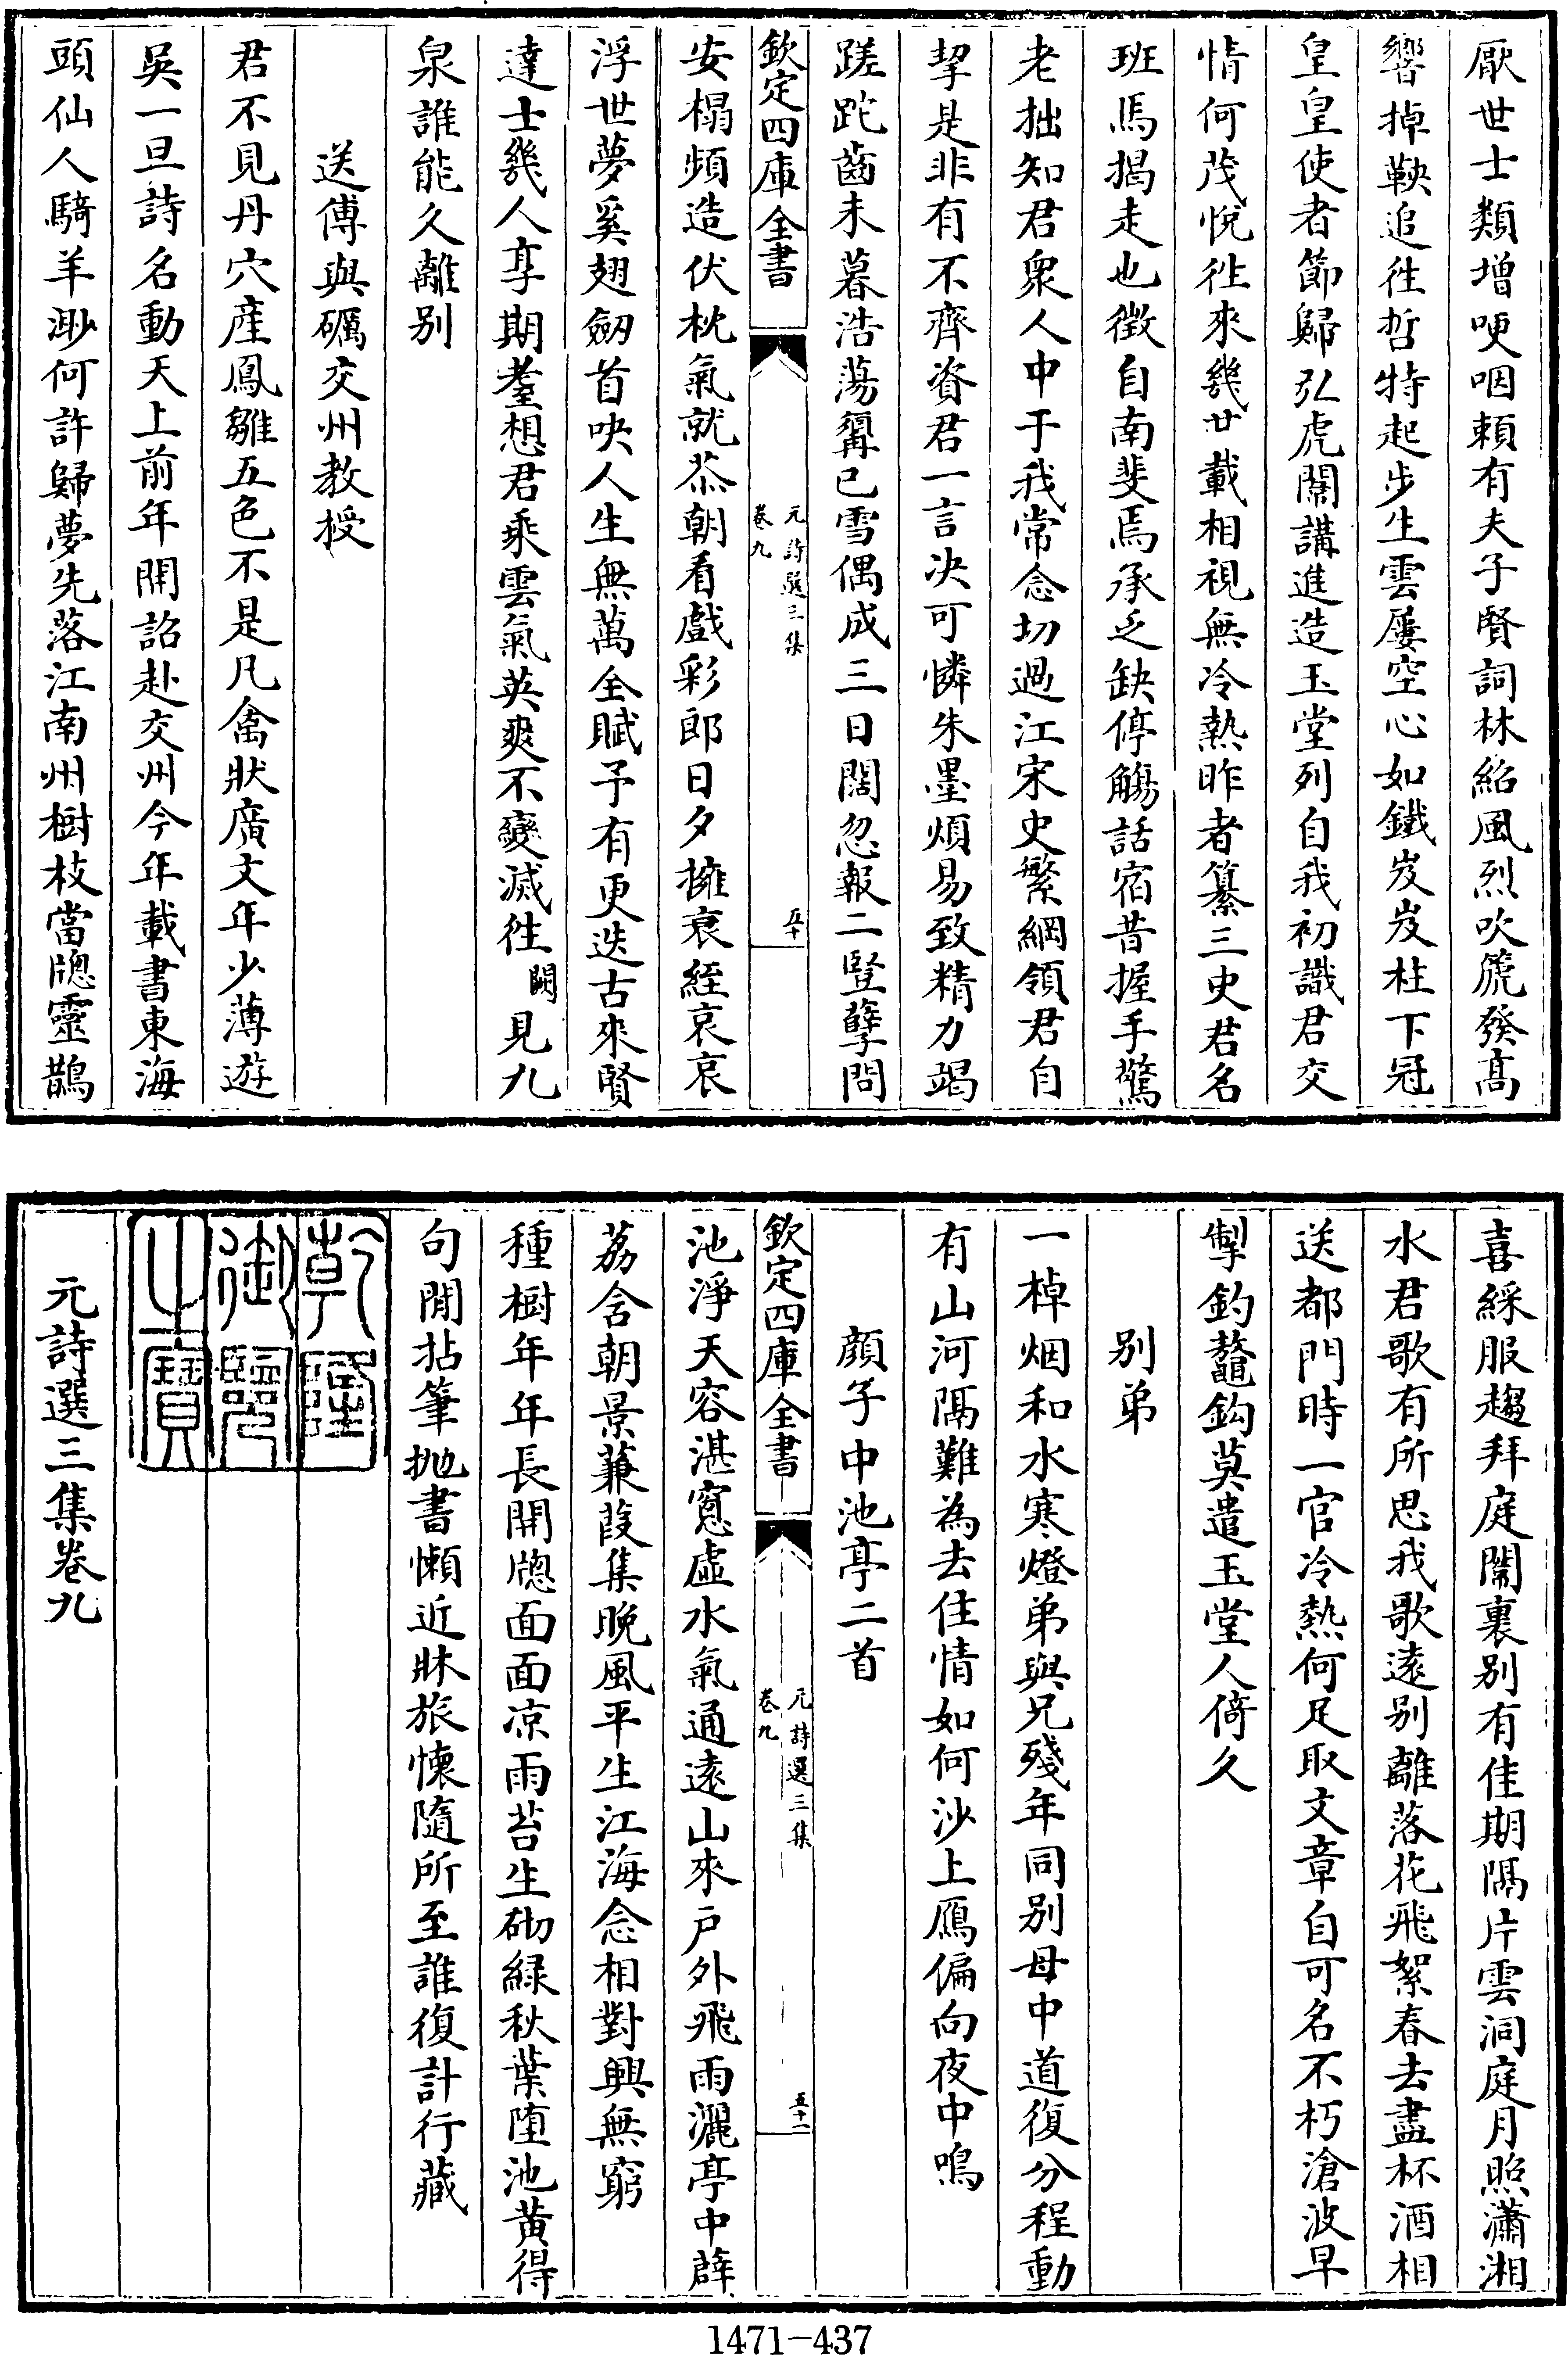 厭世士類增哽咽頼有夫子賢詞林紹風烈吹篪發髙
響掉鞅追徃哲特起步生雲屢空心如鐵岌岌柱下冠
皇皇使者節歸弘虎闈講進造玉堂列自我初識君交
情何茂悅徃來幾廿載相視無冷熱昨者纂三史君名
班馬揭走也徵自南斐焉承乏缺停觴話宿昔握手驚
老拙知君衆人中于我常念切過江宋史繁綱領君自
挈是非有不齊資君一言决可憐朱墨煩易致精力竭
蹉跎齒未暮浩蕩鬢已雪偶成三日闊忽報二豎孽問
欽定四庫全書
元詩選三集
卷九
五十
安榻頻造伏枕氣就苶朝看戲彩郎日夕擁衰絰哀哀
浮世夢奚翅劒首吷人生無萬全賦予有更迭古來賢
達士幾人享期耋想君乘雲氣英爽不變滅徃闕見九
泉誰能久離别
送傅與礪交州教授
君不見丹穴産鳳雛五色不是凡禽狀廣文年少薄遊
吳一旦詩名動天上前年開詔赴交州今年載書東海
頭仙人騎羊渺何許歸夢先落江南州樹枝當牕靈鵲
喜綵服趨拜庭闈裏别有佳期隔片雲洞庭月照瀟湘
水君歌有所思我歌遠别離落花飛絮春去盡杯酒相
送都門時一官冷熱何足取文章自可名不朽滄波早
掣釣鼇鈎莫遣玉堂人倚久
别弟
一棹烟和水寒燈弟與兄殘年同别母中道復分程動
有山河隔難為去住情如何沙上鴈偏向夜中鳴
顔子中池亭二首
池淨天容湛窻虚水氣通遠山來户外飛雨灑亭中薜
荔含朝景蒹葭集晚風平生江海念相對興無窮
欽定四庫全書
元詩選三集
卷九
五十一
種樹年年長開牕面面凉雨苔生砌緑秋葉墮池黄得
句閒拈筆抛書懶近牀旅懷隨所至誰復計行藏
乾隆御覽之寶
元詩選三集卷九
1471-437